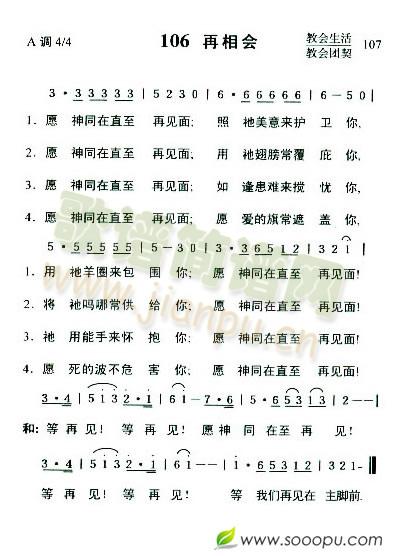 A 调 4/4
106 再相会
教会生活
教会团契
107
3 · 3 3 3 3 3 | 5 2 3 0 | 6 · 6 6 6 6 6 | 6 - 5 0 |
1. 愿 神同在直至 再见面; 照 祂美意来护 卫 你,
2. 愿 神同在直至 再见面; 用 祂翅膀常覆 庇 你,
3. 愿 神同在直至 再见面; 如 逢患难来搅 忧 你,
4. 愿 神同在直至 再见面; 愿 爱的旗常遮 盖 你,
5 · 5 5 5 5 5 | 5 - 3 0 | 3 · 6 6 5 1 2 | 3 2 1 |
1. 用 祂羊圈来包 围 你; 愿 神同在直至 再见面!
2. 将 祂吗哪常供 给 你; 愿 神同在直至 再见面!
3. 祂 用能手来怀 抱 你; 愿 神同在直至 再见面!
4. 愿 死的波不危 害 你; 愿 神同在直至 再见面!
3 · 4 | 5 i 3 2 · i | 6 i - | 7 · 6 | 5 - 6 5 3 1 3 | 2 -
和: 等 再 见! 等 再 见! 愿 神 同 在 至 再 见!
3 · 4 | 5 i 3 2 · i | 6 i - | i · 6 | 5 3 5 3 1 2 | 3 2 1 - ‖
等 再 见! 等 再 见! 等 我们再见在 主脚前.
歌谱简谱网
www.jianpu.cn
www.sooopu.com